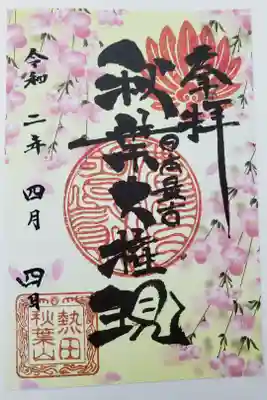 奉拝
秋葉大権現
令和二年 四月 四日
熱田
秋葉山